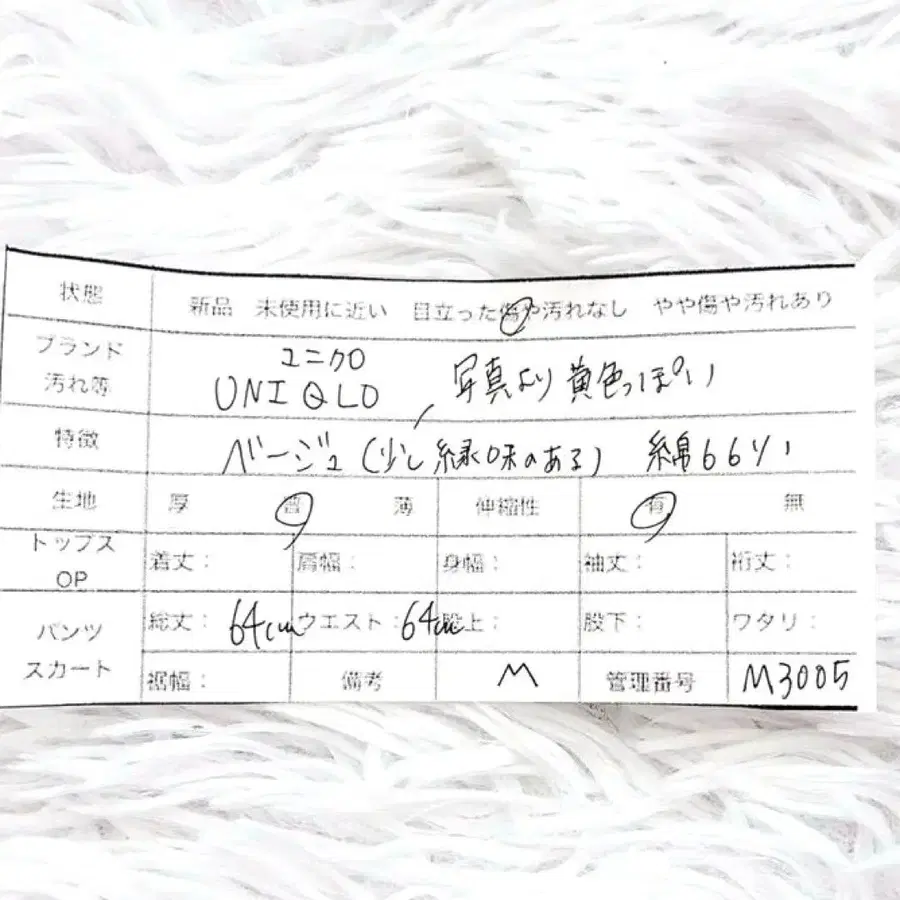 状態 新品 未使用に近い 目立った傷や汚れなし やや傷や汚れあり
ブランド ユニクロ
汚れ等 UNIQLO 写真より黄色っぽい
特徴 ベージュ(少し緑味のある) 綿66%
生地 厚 普 薄 伸縮性 有 無
トップス
OP 着丈: 肩幅: 身幅: 袖丈: 裄丈:
パンツ 総丈: 64cm ウエスト: 64cm 股上: 股下: ワタリ:
スカート 裾幅: 備考 M 管理番号 M3005